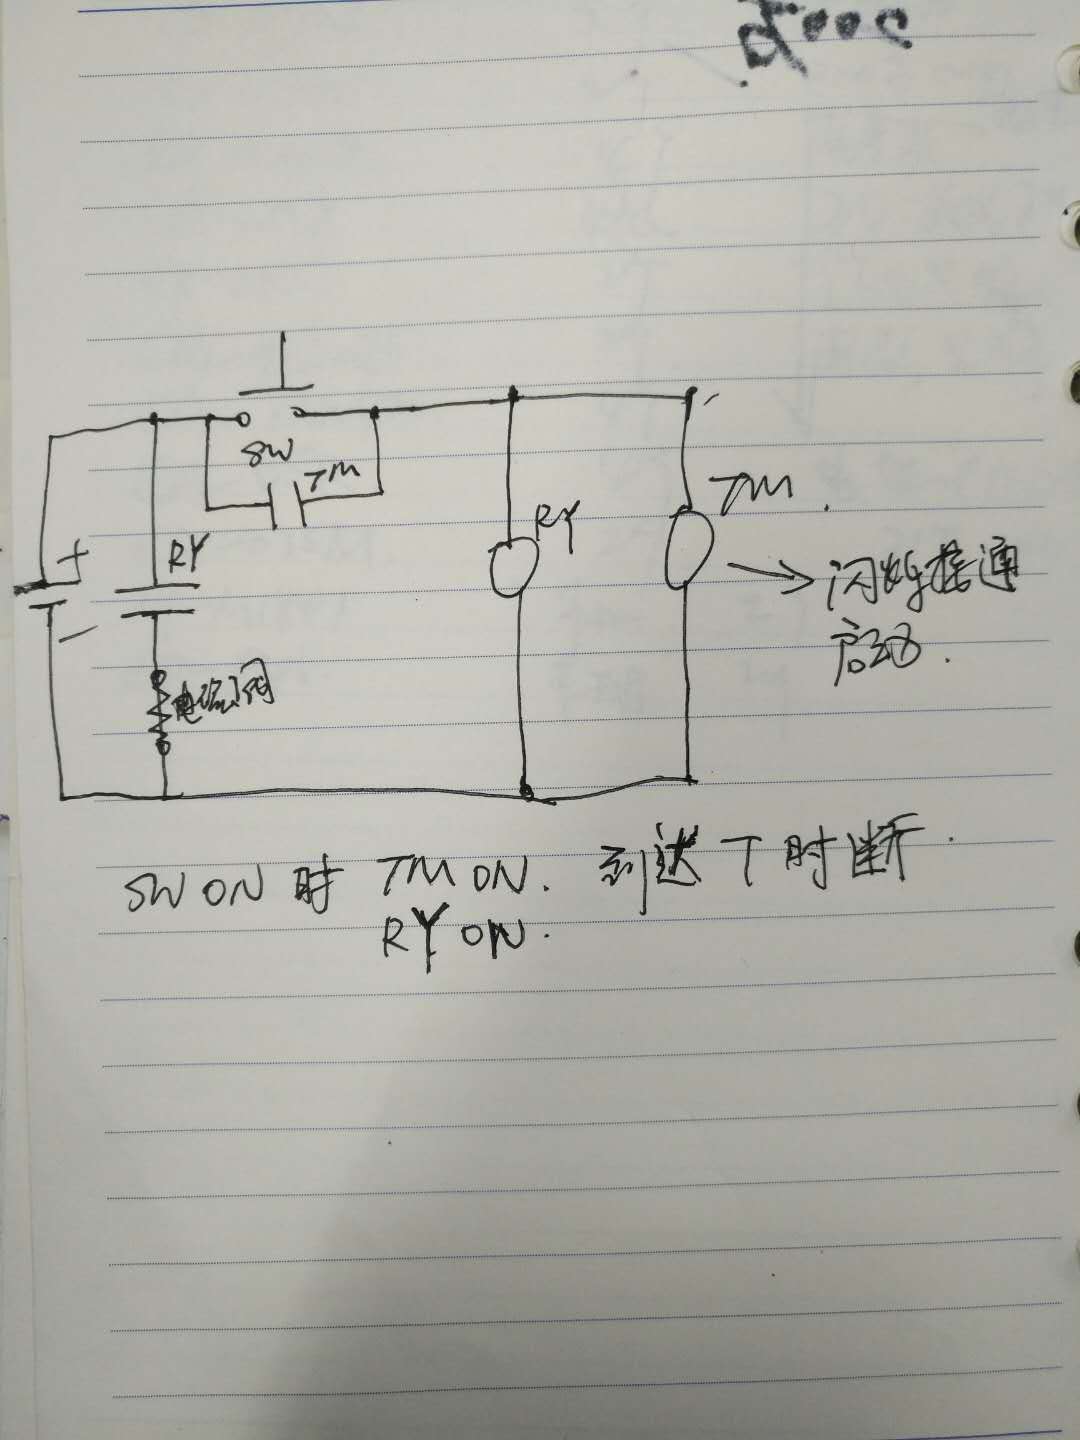 SW
TM
RY
TM.
RY
+
闪烁接通
启动.
-
电磁阀
SW ON 时 TM ON. 到达 T 时断.
RY ON.